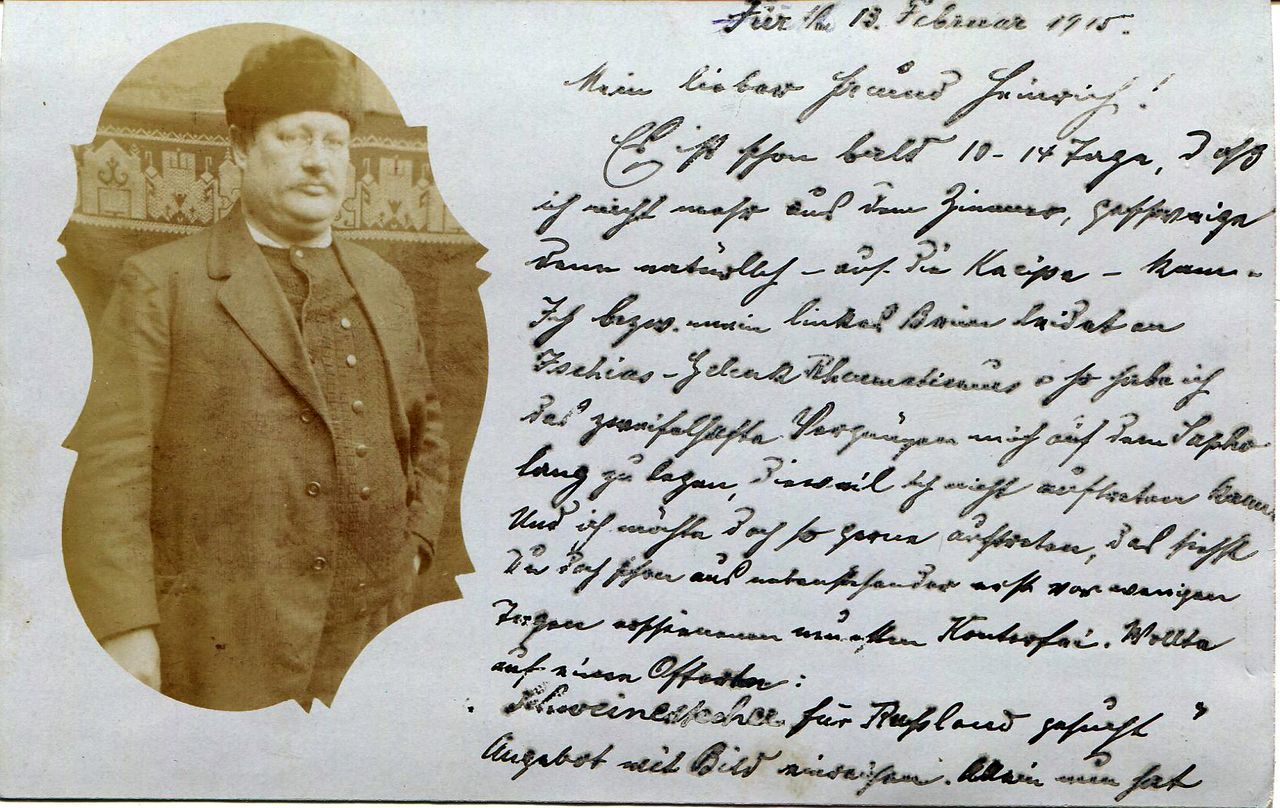 Fürth 13. Februar 1915.
Mein lieber Freund Heinrich!
Es ist schon bald 10-14 Tage, daß
ich nicht mehr aus dem Zimmer, geschweige
denn natürlich - auf die Kneipe - kann.
Ich bezw. mein linkes Bein leidet an
Ischias-Gelenk Rheumatismus so habe ich
das zweifelhafte Vergnügen mich auf dem Sopha
lang zu legen, dieweil ich nicht auftreten kann.
Und ich möchte doch so gerne auftreten, das siehst
Du doch schon aus nebenstehender erst vor wenigen
Tagen erschienenen Konterfei. Wollte
auf einen Offerten:
"Schweinestecher für Rußland gesucht"
Angebot mit Bild einreichen. Allein nun hat